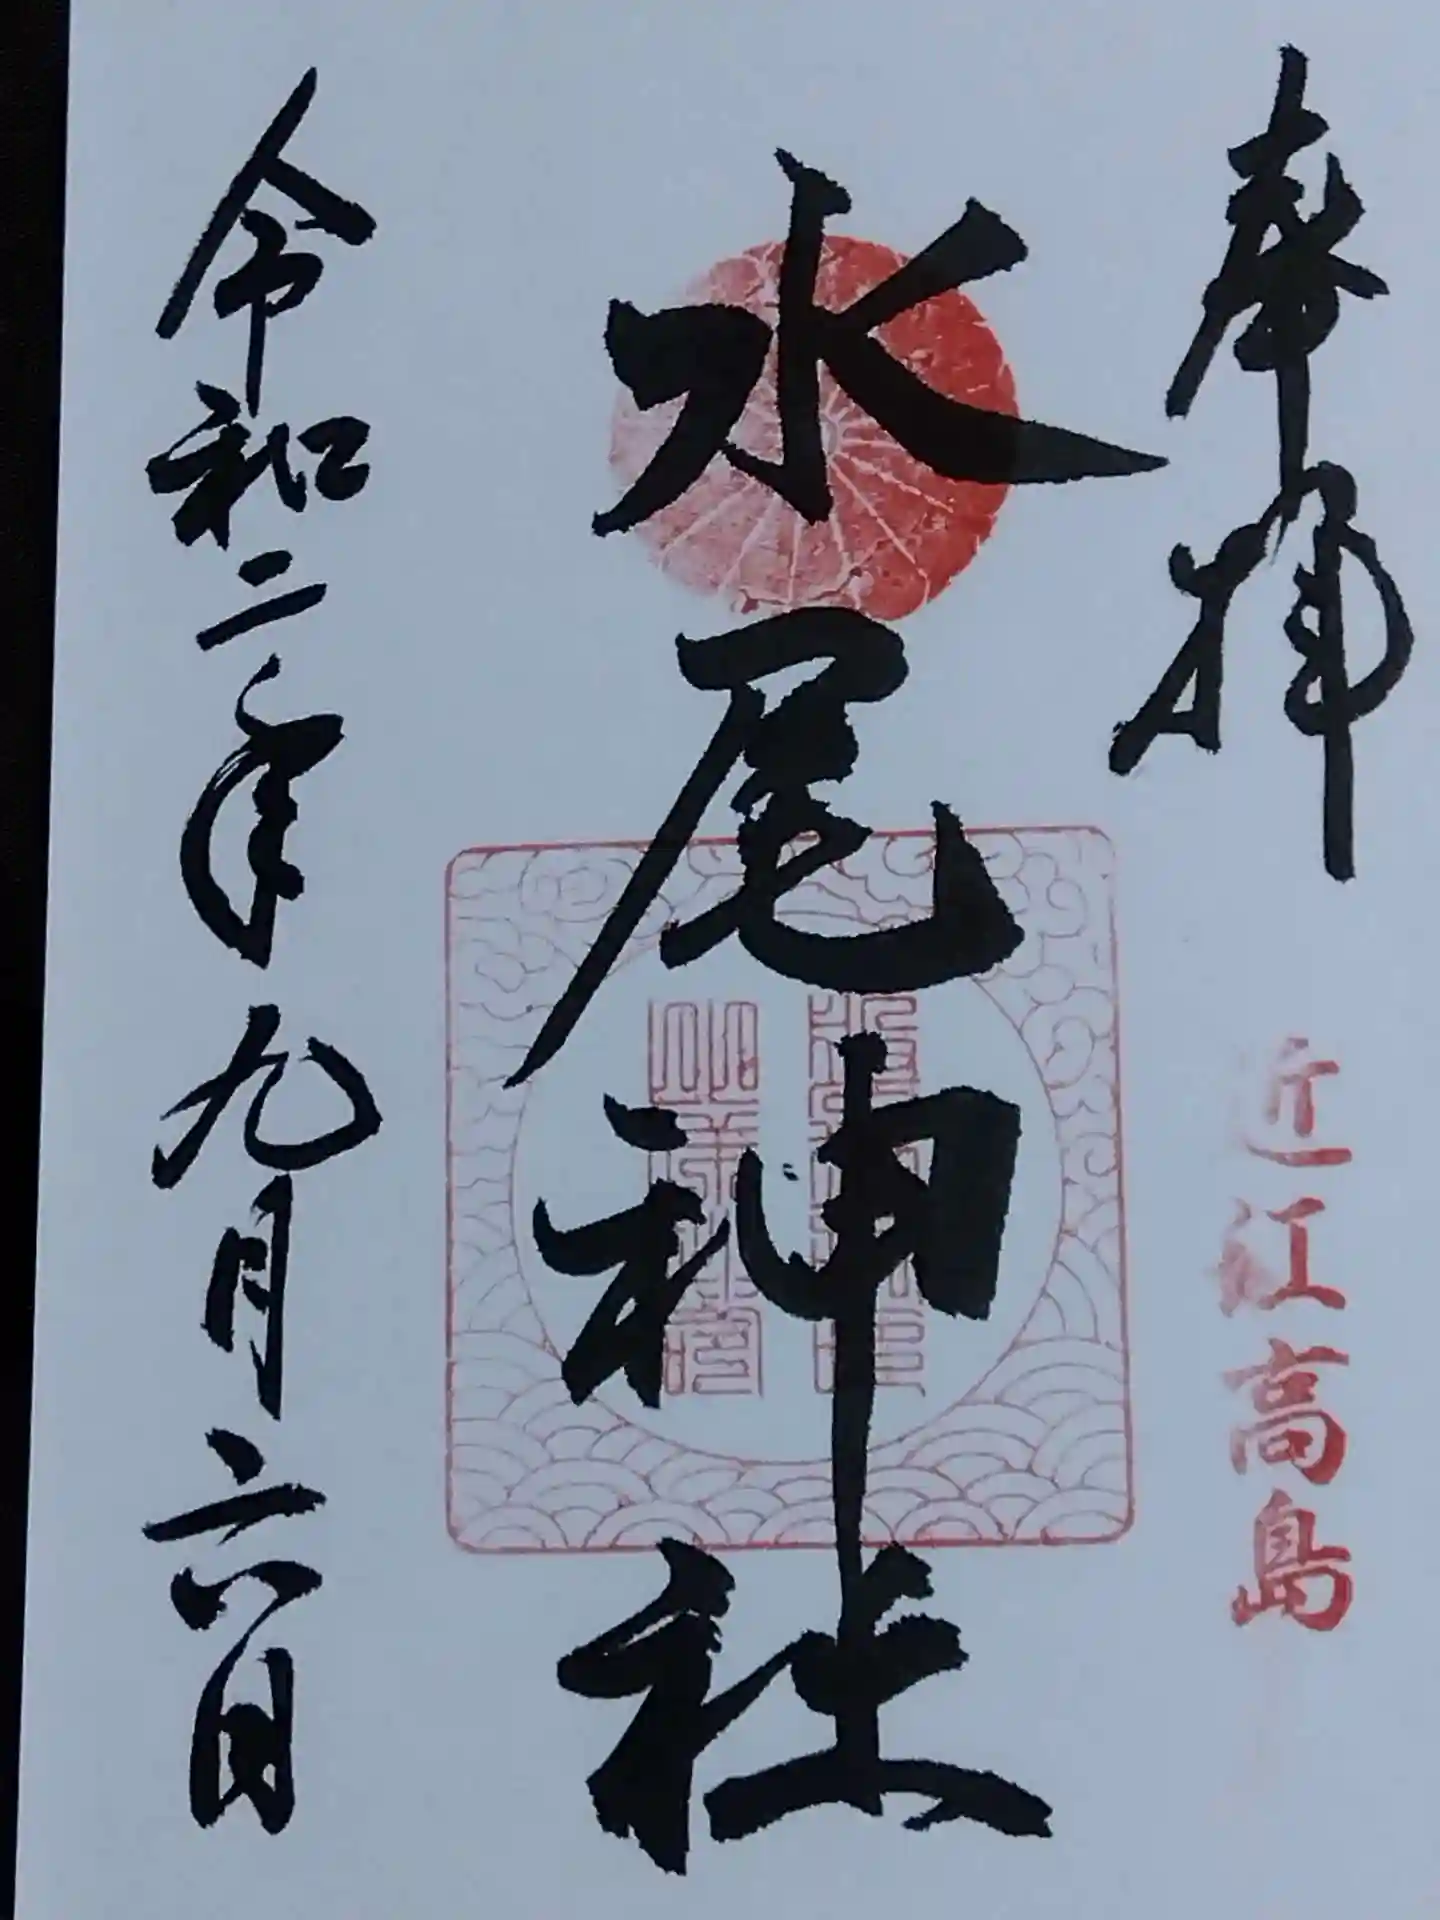 奉拝
近江高島
水尾神社
令和二年九月六日